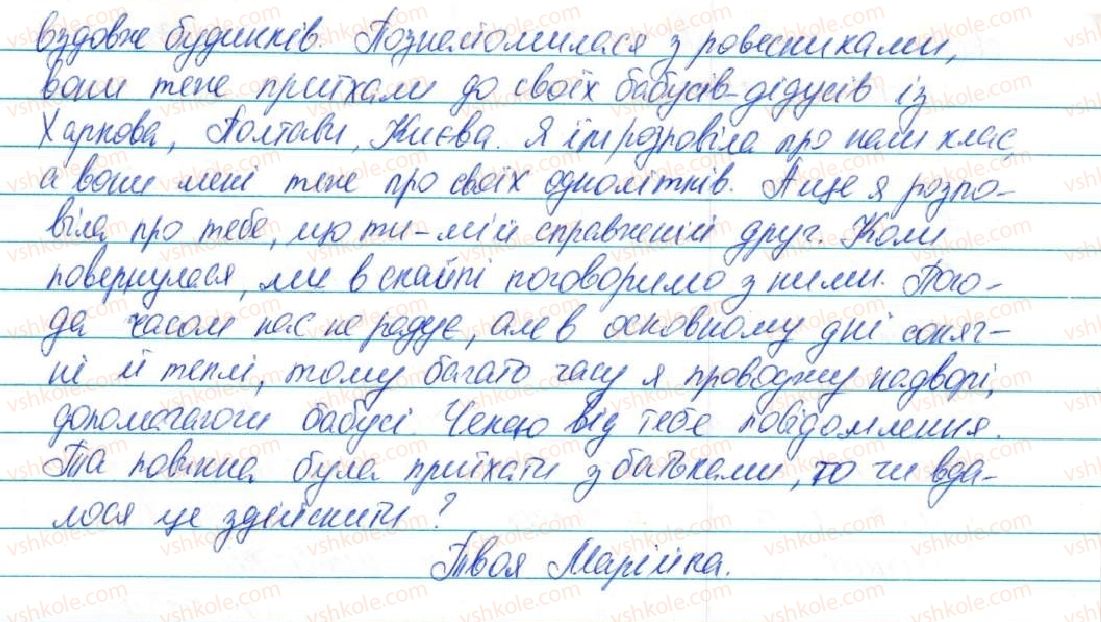 вздовж будинків. Познайомилася з ровесниками,
вони теж приїхали до своїх бабусів-дідусів із
Харкова, Полтави, Києва. Я їм розповіла про наш клас,
а вони мені теж про своїх однолітків. А ще я розпо-
віла про тебе, що ти-мій справжній друг. Коли
повернулася, ми в скайпі поговоримо з ними. Пого-
да часом нас не радує, але в основному дні соняч-
ні й теплі, тому багато часу я проводжу надворі,
допомагаючи бабусі. Чекаю від тебе повідомлення.
Ти повинна була приїхати з батьками, то чи вда-
лося це здійснити?
Твоя Марійка.